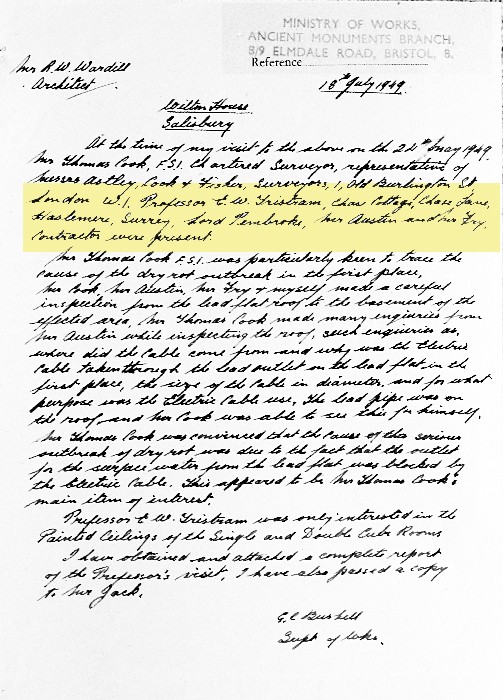 MINISTRY OF WORKS,
ANCIENT MONUMENTS BRANCH,
8/9 ELMDALE ROAD, BRISTOL, 8.
Reference
Mr R. W. Wardill
Architect.
18th July 1949.
Wilton House
Salisbury
At the time of my visit to the above on the 24th May 1949
Mr Thomas Cook, F.S.I. Chartered Surveyor, representative of
Messrs Astley, Cook & Fisher, Surveyors, 1, Old Burlington St
London W.1, Professor E. W. Tristram, Chase Cottage, Chase Lane,
Haslemere, Surrey, Lord Pembroke, Mr Austin and Mr Fry,
Contractor were present.
Mr Thomas Cook F.S.I. was particularly keen to trace the
cause of the dry rot outbreak in the first place,
Mr Cook, Mr Austin, Mr Fry & myself made a careful
inspection from the lead flat roof to the basement of the
effected area, Mr Thomas Cook made many enquiries from
Mr Austin while inspecting the roof, such enquiries as,
where did the Cable come from and why was the Electric
Cable taken through the lead outlet in the lead flat in the
first place, the size of the Cable in diameter, and for what
purpose was the Electric Cable use, The lead pipe was on
the roof and Mr Cook was able to see this for himself.
Mr Thomas Cook was convinced that the cause of this serious
outbreak of dry rot was due to the fact that the outlet
for the surface water from the lead flat was blocked by
the Electric Cable. This appeared to be Mr Thomas Cook's
main item of interest.
Professor E. W. Tristram was only interested in the
Painted Ceilings of the Single and Double Cube Rooms
I have obtained and attached a complete report
of the Professor's visit, I have also passed a copy
to Mr Jack.
G. C. Bushell
Supt of Wks.